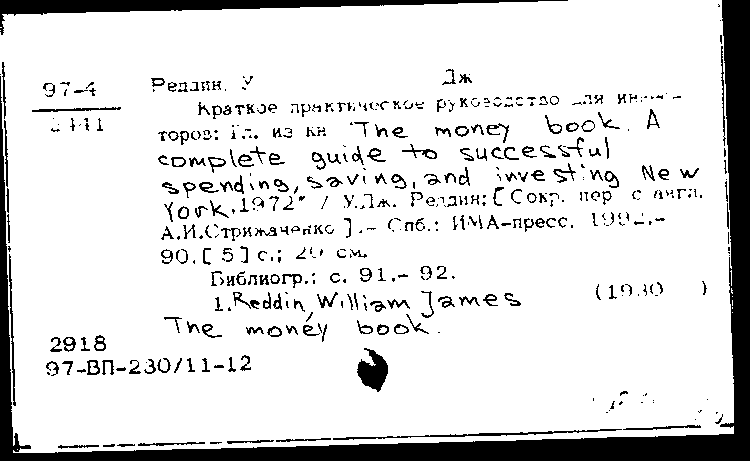 97-4 Реддин, У Дж
Краткое практическое руководство для
2441
торов: Гл. из кн "The money book. A
complete guide to successful
spending, saving, and investing New
York, 1972" / У.Дж. Реддин; [Сокр. пер с англ.
А.И.Стрижаченко ].- Спб.: ИМА-пресс, 1992.-
90,[ 5] с.; 20 см.
Библиогр.: с. 91.- 92.
1.Reddin, William James (1930 )
The money book.
2918
97-ВП-230/11-12